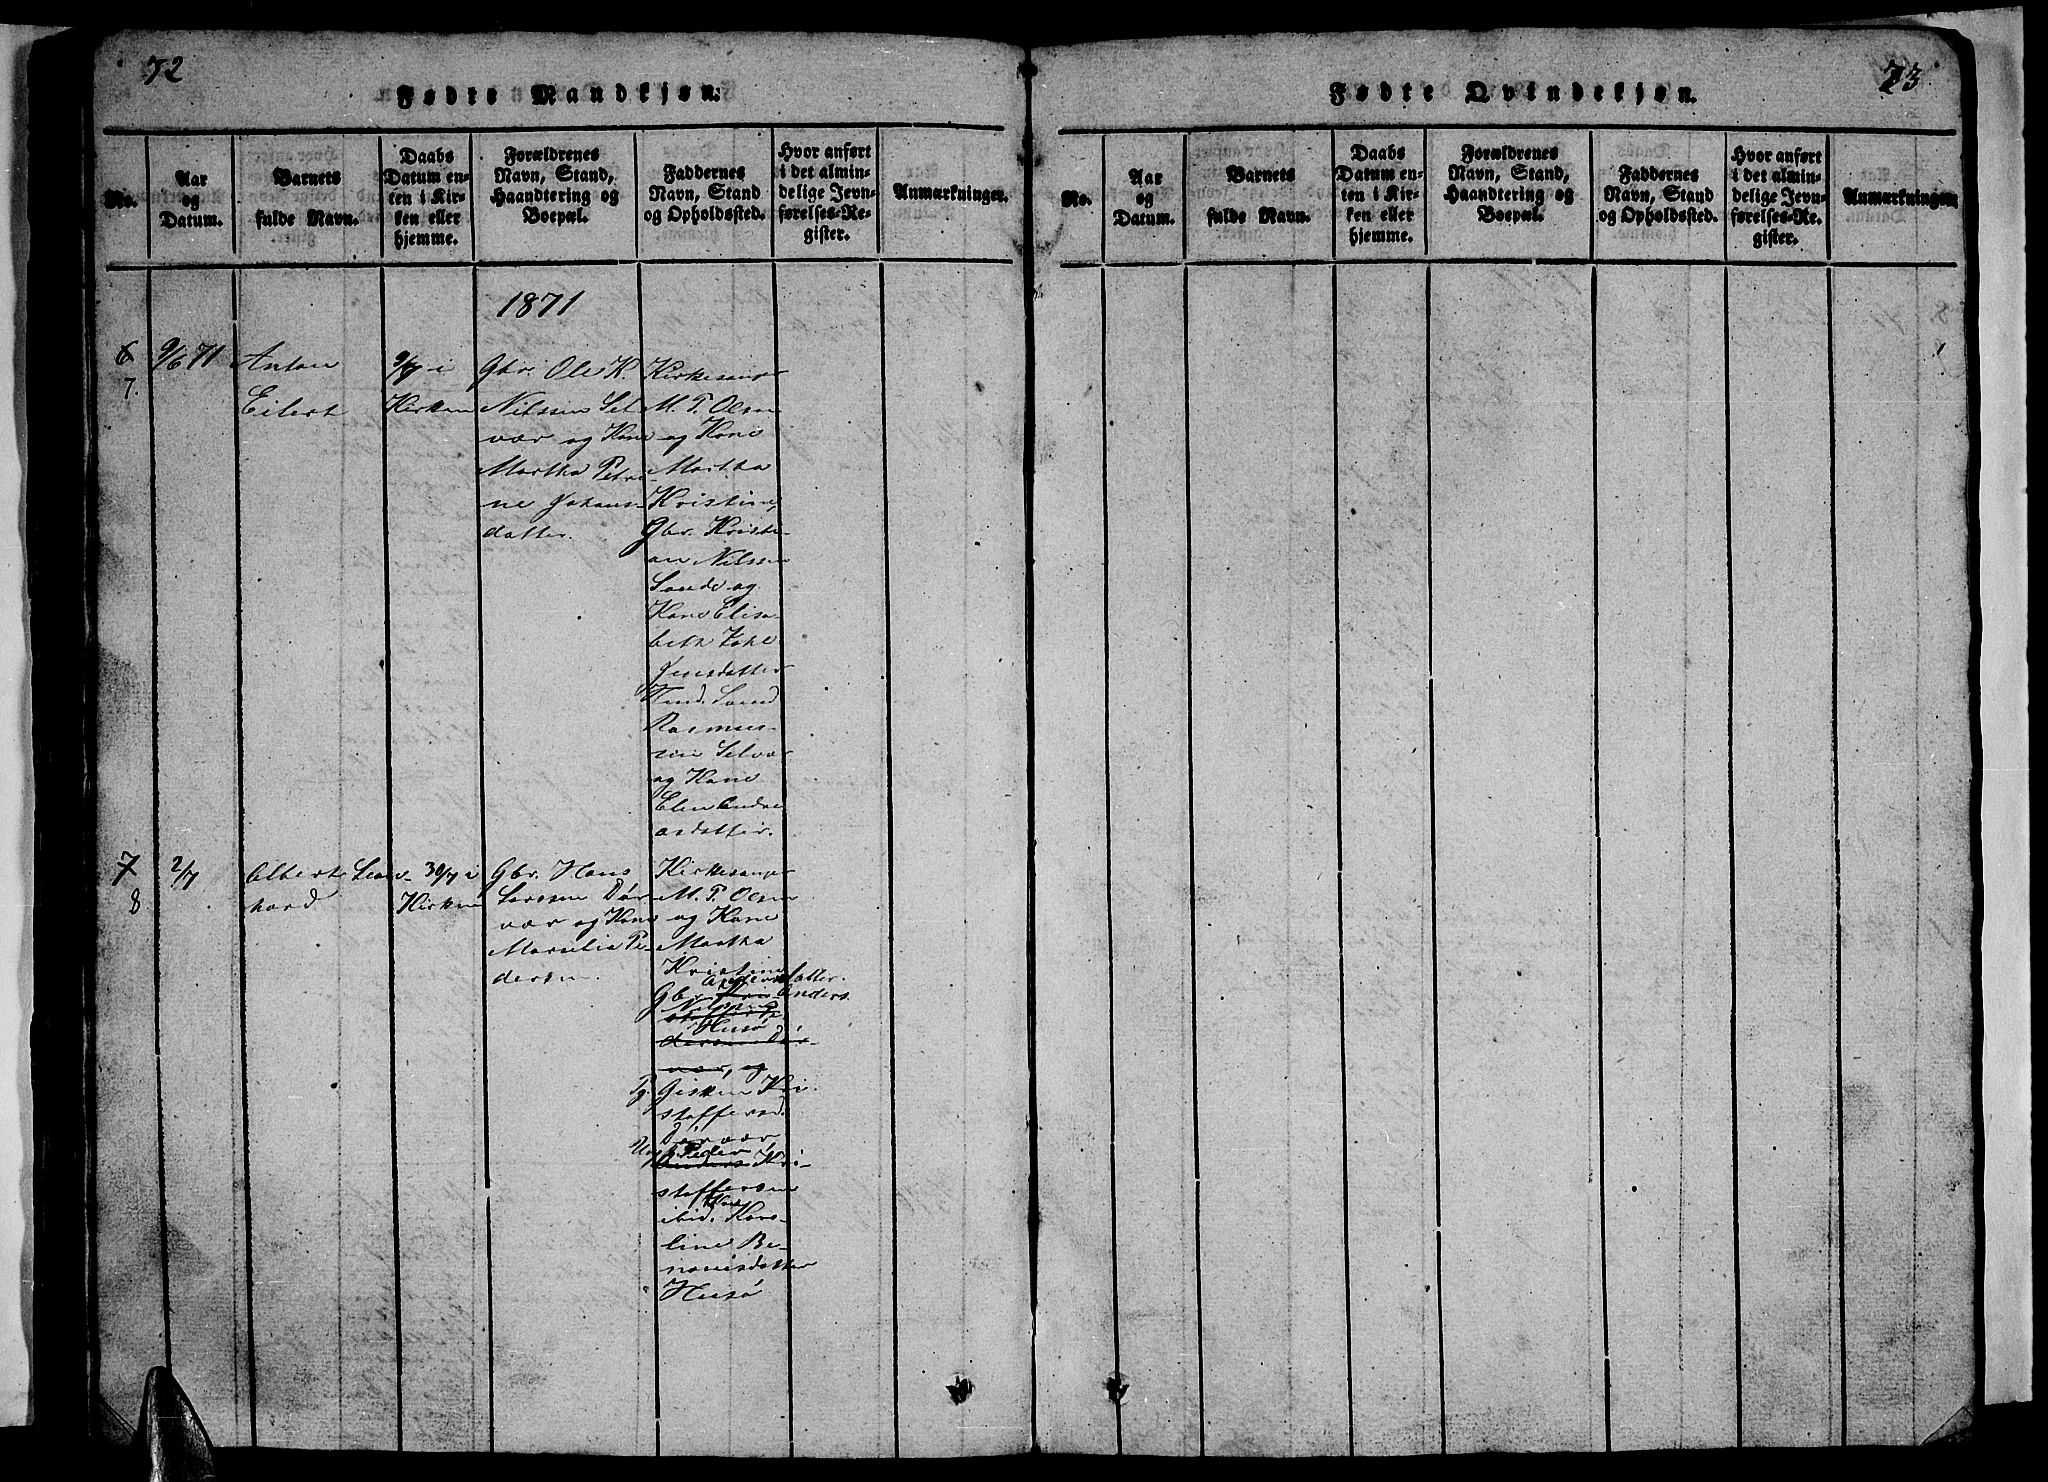 72
Fødte Mandkjøn.
No.
Aar
og
Datum.
Barnets
fulde Navn.
Daabs
Datum en-
ten i Kir-
ken eller
hjemme.
Forældrenes
Navn, Stand,
Haandtering og
Boepæl.
Faddernes
Navn, Stand
og Opholdssted.
Hvor anført
i det almin-
delige Jevn-
førelses-Re-
gister.
Anmærkninger.
1871
6
7.
9/6 71
Anton
Eilert
9/7 i
Kirken
Gbr. Ole K.
Nilssen Sel
vær og Kone
Martha Petri-
ne Johans-
datter.
Kirkesanger
M. P. Olsen
og Kone
Martha
Kristine,
Gbr. Kristi-
an Nilssen
Sande og
Kone Elisa-
beth
Jensdatter
Rasmus-
sen Selvær
og Kone
Elen Andre
asdatter.
7
8
2/7
Albert Leon-
hard
30/7 i
Kirken
Gbr. Hans
Larssen Dør
vær og Kone
Pe-
dersen.
Kirkesanger
M. P. Olsen
og Kone
Martha
Kristine
Andersdatter.
Gbr. Kris- Anders
Nilssen
stoffer Pe
Husø
dersen Dør-
vær, og
Pg. Gisken Kri-
stoffersd.
Dørvær
Ungk. Peder
Anders Kri-
stoffersen
ibid. Kone Karo-
line Be-
nonisdatter
Husø
73
Fødte Qvindekjøn.
No.
Aar
og
Datum.
Barnets
fulde Navn.
Daabs
Datum en-
ten i Kir-
ken eller
hjemme.
Forældrenes
Navn, Stand,
Haandtering og
Boepæl.
Faddernes
Navn, Stand
og Opholdssted.
Hvor anført
i det almin-
delige Jevn-
førelses-Re-
gister.
Anmærkninger